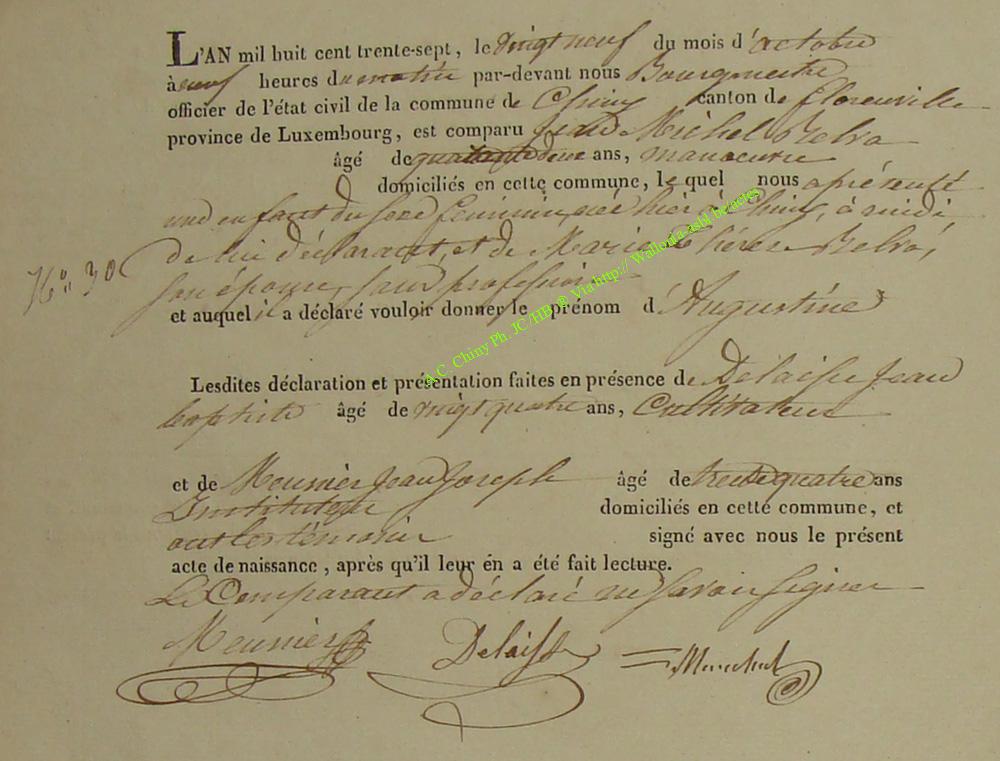 L'AN mil huit cent trente-sept, le vingt neuf du mois d'octobre
à neuf heures du matin par-devant nous Bourgmestre
officier de l'état civil de la commune de Chiny canton de florenville
province de Luxembourg, est comparu Jean Michel
âgé de quarante deux ans, manoeuvre
domiciliés en cette commune, le quel nous a présenté
une enfant du sexe feminin, née hier à Chiny, à midi,
N° 30
de lui déclarant, et de Marie thérèse
son épouse, sans profession
et auquel il a déclaré vouloir donner le prénom d'Augustine
Lesdites déclaration et présentation faites en présence de Delaisse Jean
baptiste âgé de vingt quatre ans, Cultivateur
et de Meunier Jean Joseph âgé de trente quatre ans
Instituteur domiciliés en cette commune, et
ont les témoins signé avec nous le présent
acte de naissance, après qu'il leur en a été fait lecture.
Le Comparant a déclaré ne savoir signer
Meunier Delaisse
A.C. Chiny Ph. JC/HB ® Via http://Wallonia-asbl.be:actes